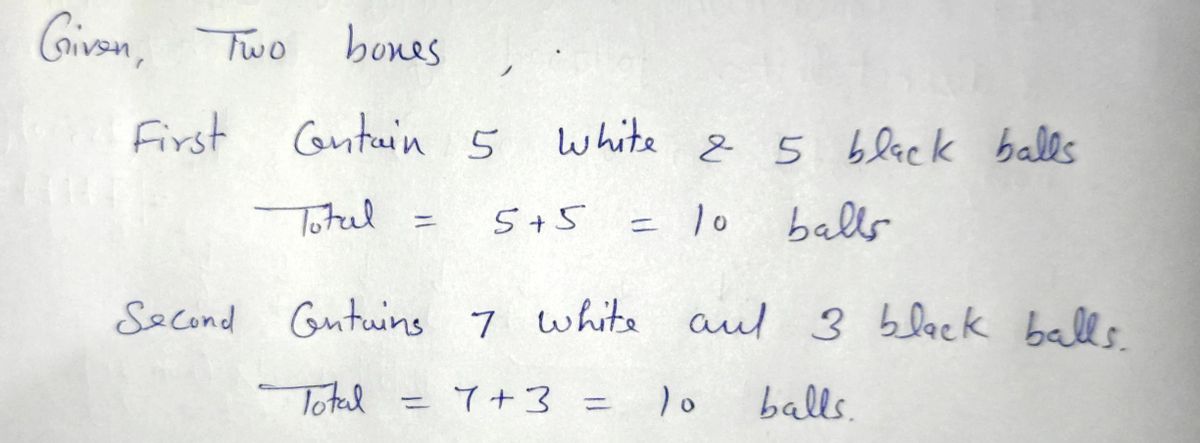 Given, Two boxes,
First Contain 5 white & 5 black balls
Total = 5+5 = 10 balls
Second Contains 7 white and 3 black balls.
Total = 7+3 = 10 balls.